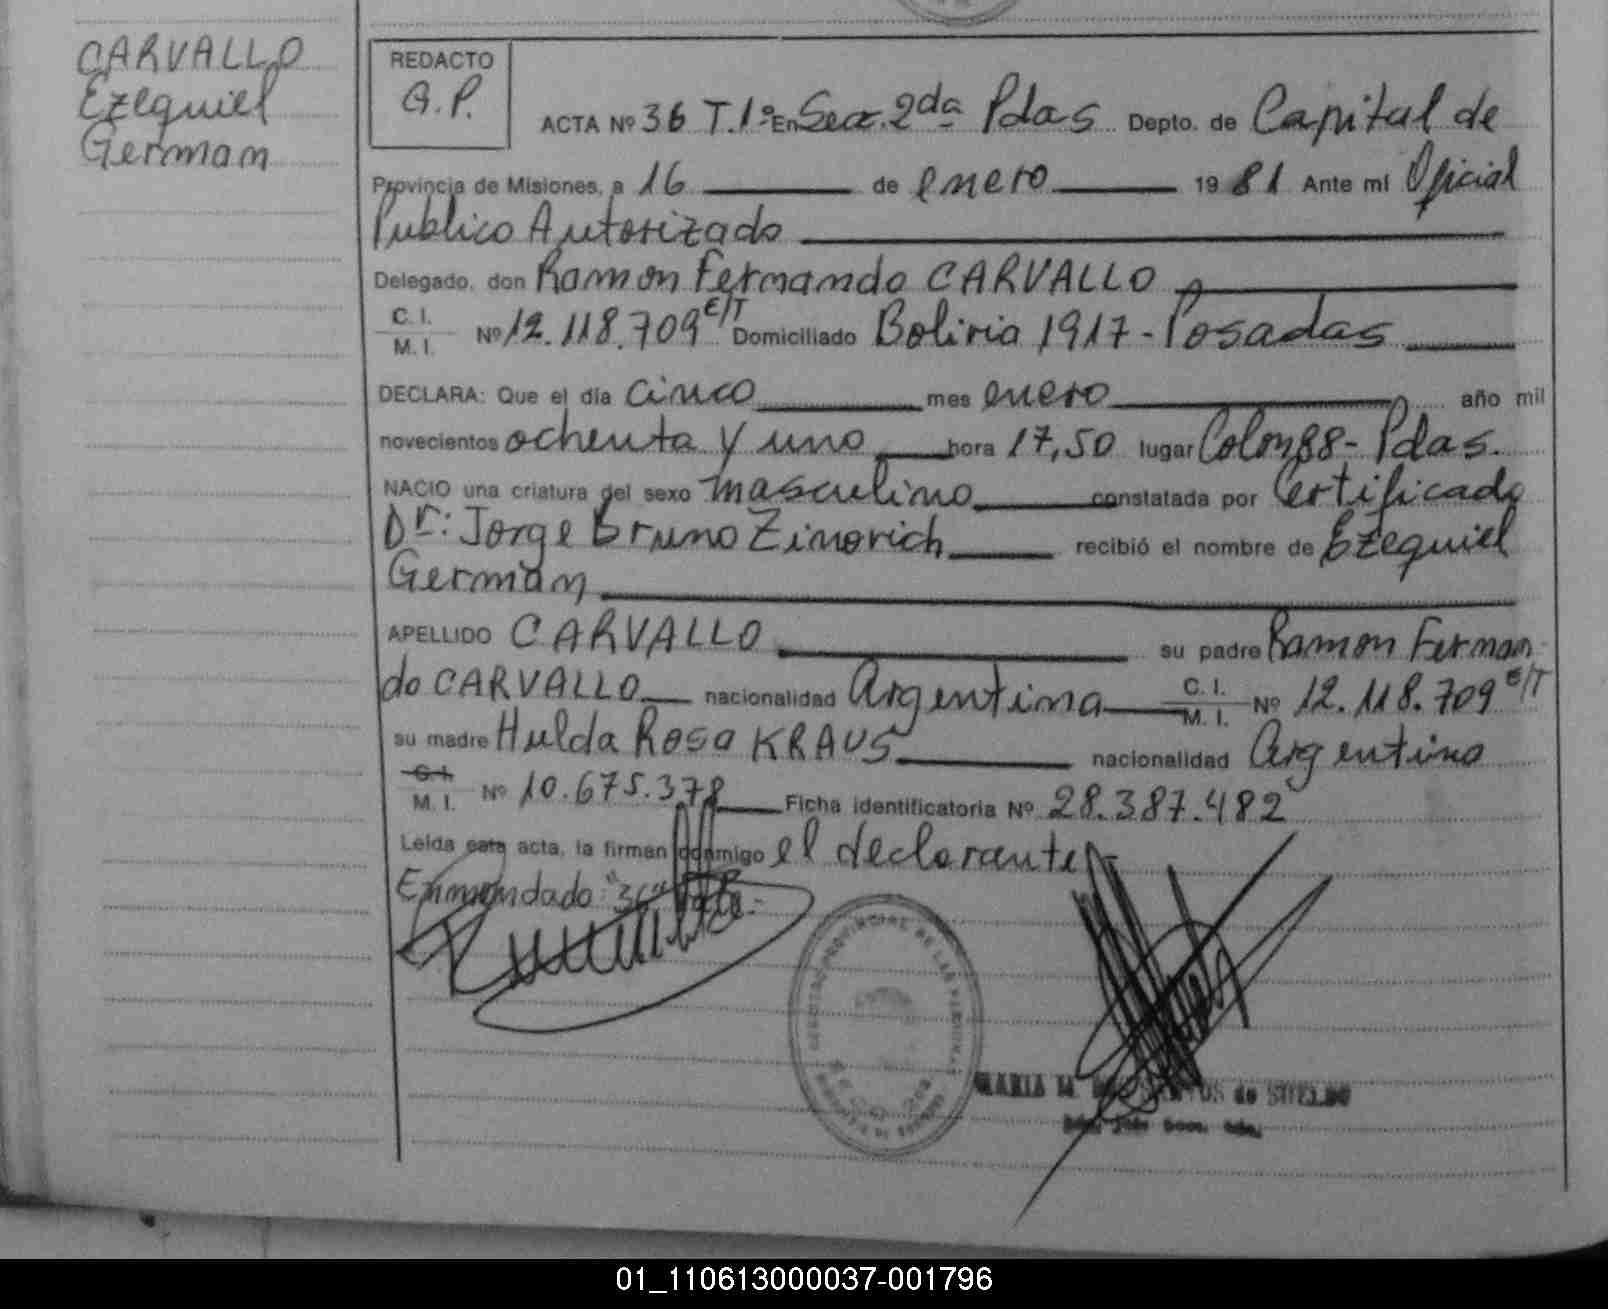 CARVALLO
Ezequiel
German
REDACTO
G.P.
ACTA Nº 36 T.1º En Secc. 2da Pdas Depto. de Capital de
Provincia de Misiones, a 16 de enero 1981 Ante mí Oficial
Publico Autorizado
Delegado, don Ramon Fernando CARVALLO
C. I.
M. I. Nº 12.118.709 E/T Domiciliado Bolivia 1917 - Posadas
DECLARA: Que el día cinco mes enero año mil
novecientos ochenta y uno hora 17,50 lugar Colon 88 - Pdas.
NACIO una criatura del sexo masculino constatada por Certificado
Dr: Jorge Bruno Zinovich recibió el nombre de Ezequiel
Germán
APELLIDO CARVALLO su padre Ramon Fernan
do CARVALLO nacionalidad Argentina C. I. M. I. Nº 12.118.709 E/T
su madre Hulda Rosa KRAUS nacionalidad Argentina
C. I.
M. I. Nº 10.675.378 Ficha identificatoria Nº 28.387.482
Leída esta acta, la firman conmigo el declarante
Enmendado: "36"
REGISTRO PROVINCIAL DE LAS PERSONAS
MARIA M. SANTOS de SUELDO
01_110613000037-001796